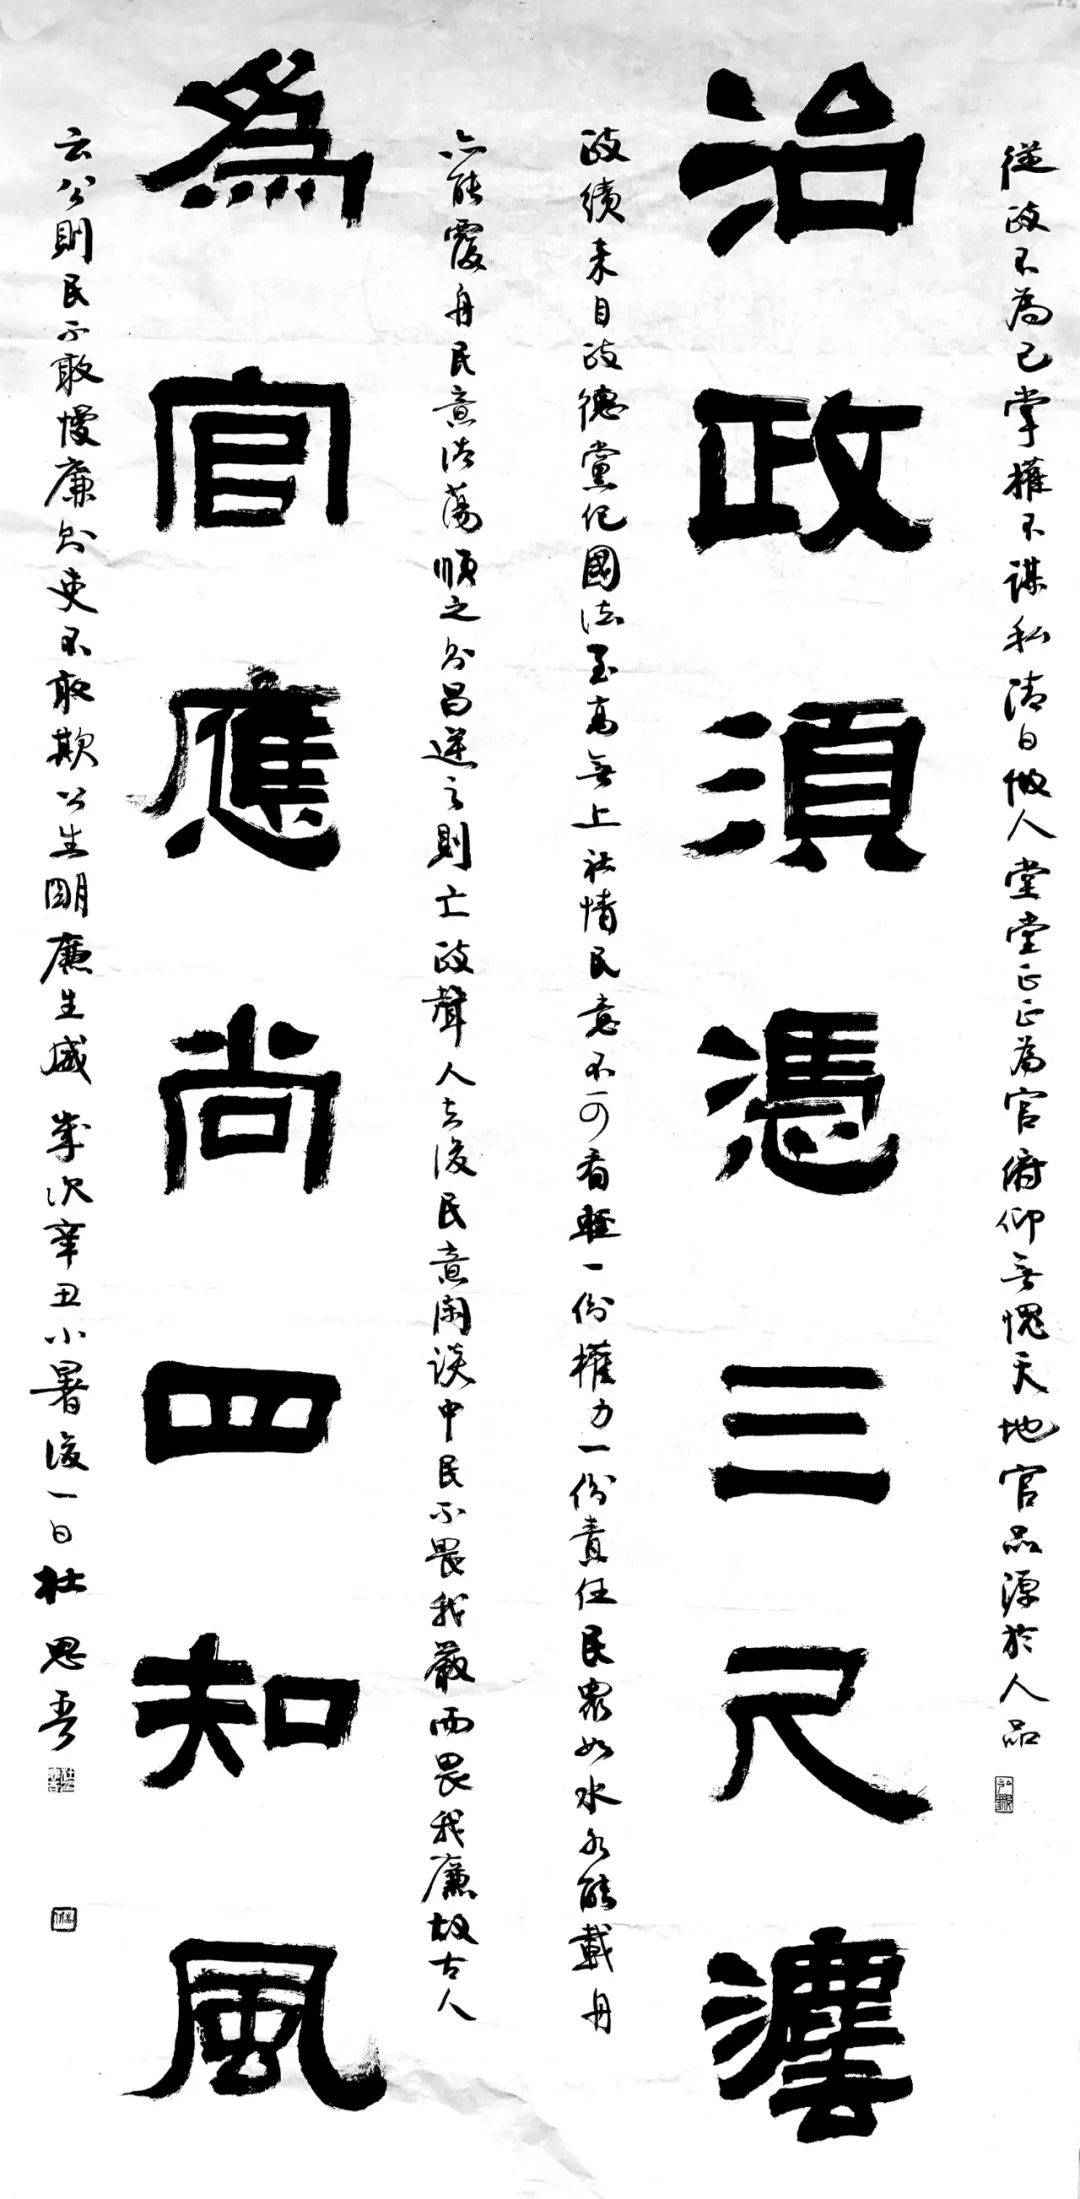 從政不為己掌權不謀私清白做人堂堂正正為官俯仰無愧天地官品源於人品
治政須憑三尺灋
政績來自政德黨紀國法至高無上社情民意不可看輕一份權力一份責任民眾如水水能載舟
亦能覆舟民意浩蕩順之則昌逆之則亡政聲人去後民意閑談中民不畏我嚴而畏我廉故古人
為官應尚四知風
云公則民不敢慢廉則吏不敢欺公生明廉生威 歲次辛丑小暑後一日杜思吾